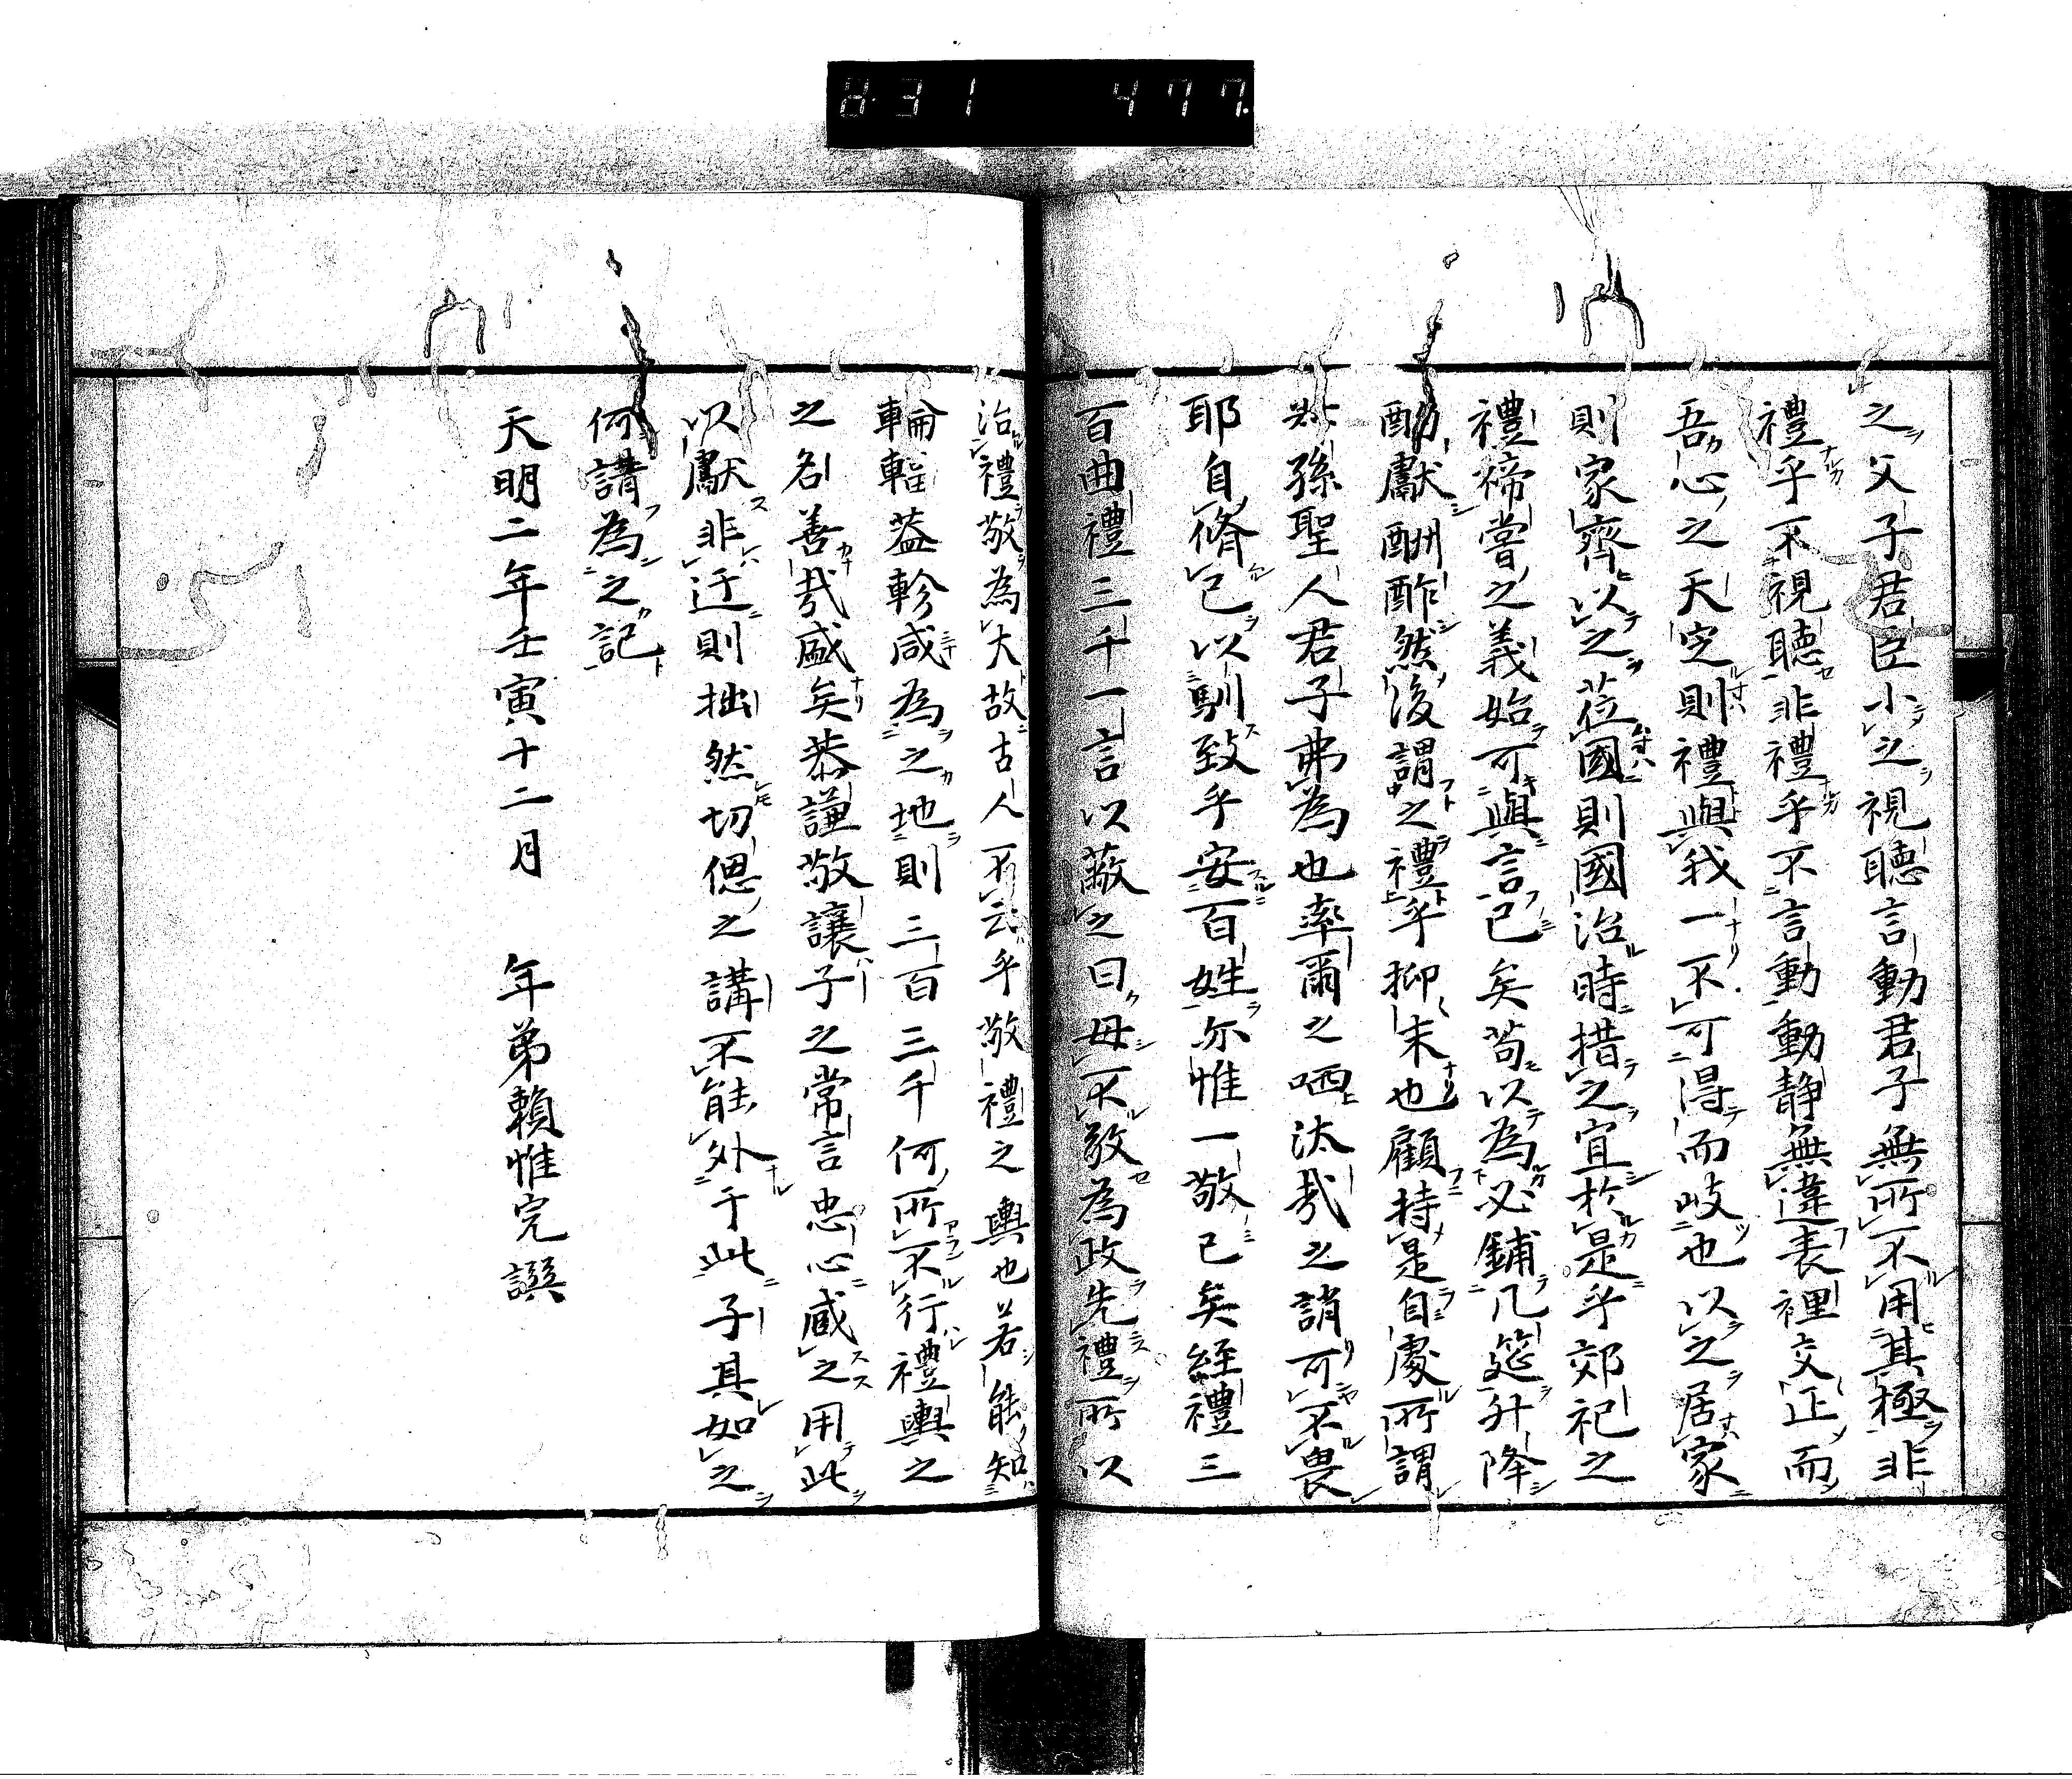 8 31 477
之父子君臣小之視聽言動君子無所不用其極非
禮乎不視聽非禮乎不言動動静無違表裡交正而
吾心之天定則禮與我一不可得而岐也以之居家
則家齊以之莅國則國治時措之宜於是乎郊祀之
禮禘嘗之義始可與言已矣苟以為必鋪几筵升降
酌獻酬酢然後謂之禮乎抑末也顧持是自處所謂
孫聖人君子弗為也率爾之哂汰哉之誚可不畏
耶自脩己以馴致乎安百姓尓惟一敬已矣経禮三
百曲禮三千一言以蔽之曰毋不敬為政先禮所以
治禮敬為大故古人不云乎敬禮之輿也若能知
輪輻蓋軫咸為之地則三百三千何所不行禮輿之
之名善哉盛矣恭謙敬讓子之常言忠心臧之用此
以獻非迂則拙然切偲之講不能外于此子其如之
何講為之記
天明二年壬寅十二月 年弟賴惟完譔